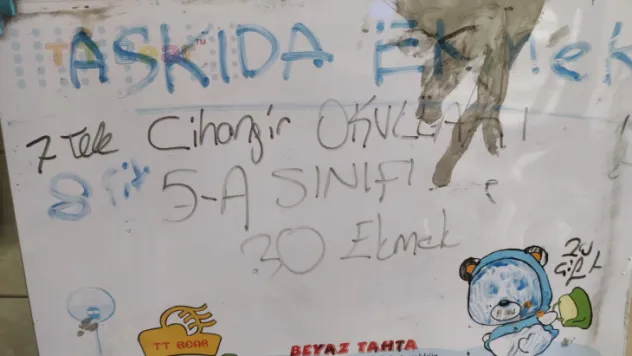 ASKIDA Ekmek
7 Tek Cihangir
5-A SINIFI
30 Ekmek
TT BEAR
BEYAZ TAHTA